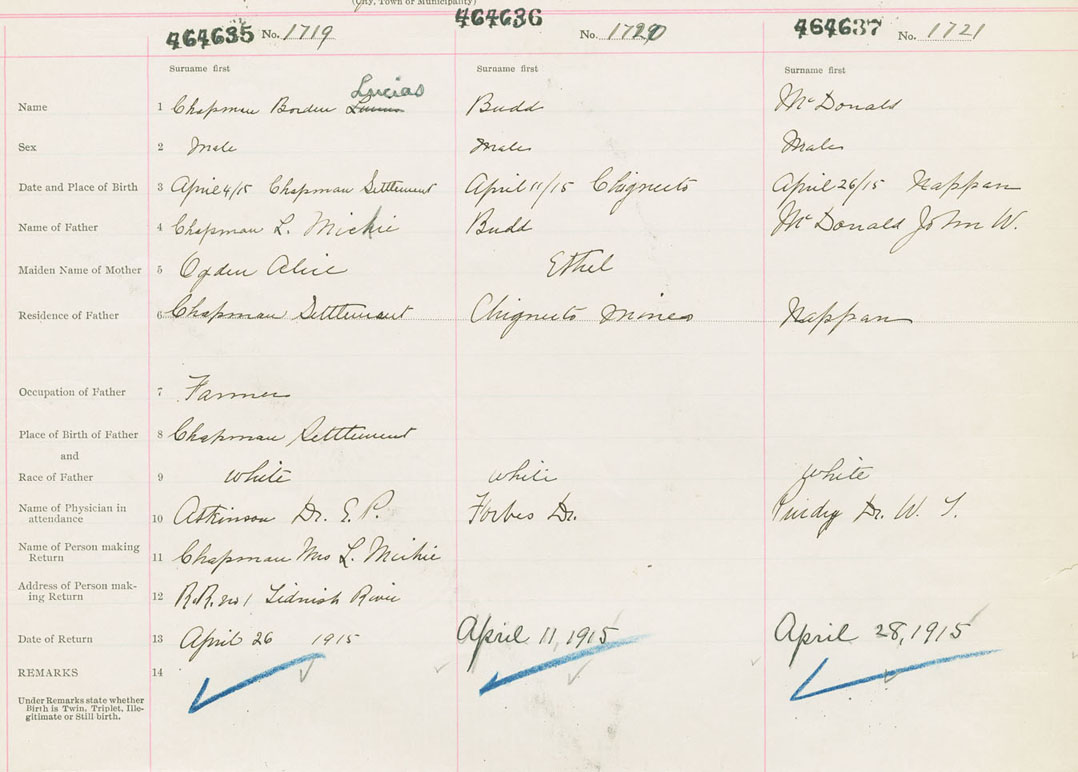 (City, Town or Municipality)
464635 No. 1719 464636 No. 1720 464637 No. 1721
Surname first Surname first Surname first
Lucias
Name 1 Chapman Borden Budd McDonald
Sex 2 Male Male Male
Date and Place of Birth 3 April 4/15 Chapman Settlement April 11/15 Chignecto April 26/15 Nappan
Name of Father 4 Chapman L. Mickie Budd McDonald John W.
Maiden Name of Mother 5 Ogden Alice Ethel
Residence of Father 6 Chapman Settlement Chignecto Mines Nappan
Occupation of Father 7 Farmer
Place of Birth of Father 8 Chapman Settlement
and
Race of Father 9 White White White
Name of Physician in
attendance 10 Atkinson Dr. E. P. Forbes Dr. Purdy Dr. W. T.
Name of Person making
Return 11 Chapman Mrs L. Mickie
Address of Person mak-
ing Return 12 R.R. No 1 Tidnish River
Date of Return 13 April 26 1915 April 11, 1915 April 28, 1915
REMARKS 14
Under Remarks state whether
Birth is Twin, Triplet, Ille-
gitimate or Still birth.